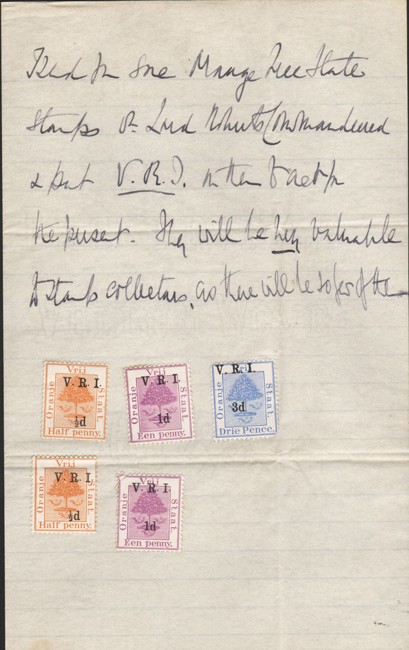 some Orange Free State
Stamps Lord Roberts Commandeered
& put V.R.I. on them to act for
the present. They will be very valuable
to Stamp collectors, as there will be so few of the
Vrij
V.R.I.
Oranje
Staat.
½d
Half penny.
Vrij
V.R.I.
Oranje
Staat.
1d
Een penny.
V.R.I.
Oranje
Staat.
3d
Drie Pence.
Vrij
V.R.I.
Oranje
Staat.
½d
Half penny.
Vrij
V.R.I.
Oranje
Staat.
1d
Een penny.